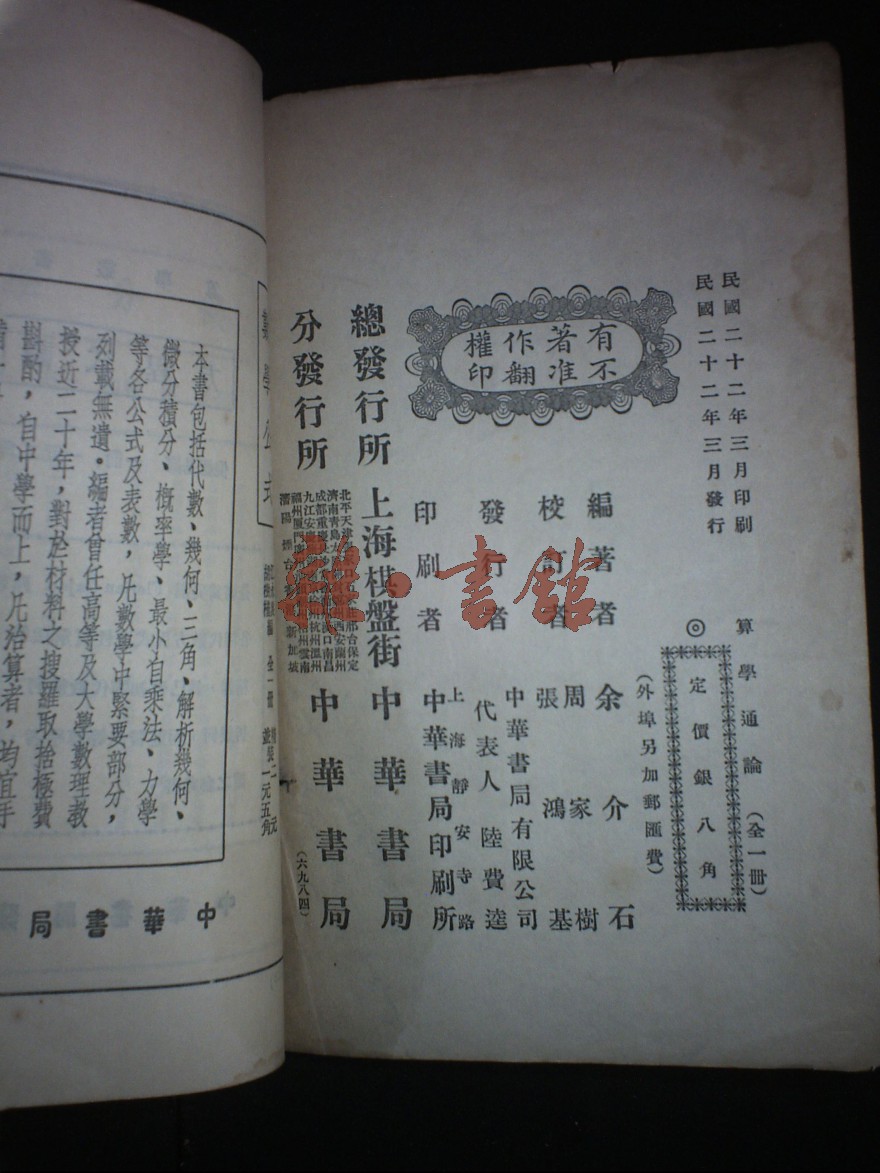 民國二十二年三月印刷
民國二十二年三月發行
算學通論（全一冊）
◎定價銀八角
（外埠另加郵匯費）
有著作權
不准翻印
編著者 余介石
校訂者 周家樹
張鴻基
發行者 中華書局有限公司
代表人 陸費逵
印刷者 上海靜安寺路
中華書局印刷所
總發行所 上海棋盤街 中華書局
分發行所 中華書局
（六九八四）
雜·書館
全一冊
二元五角
本書包括代數、幾何、三角、解析幾何、
微分積分、概率學、最小自乘法、力學
等各公式及表數，凡數學中緊要部分，
列載無遺。編者曾任高等及大學數理教
授近二十年，對於材料之搜羅取捨極費
斟酌，自中學而上，凡治算者，均宜手
中華書局